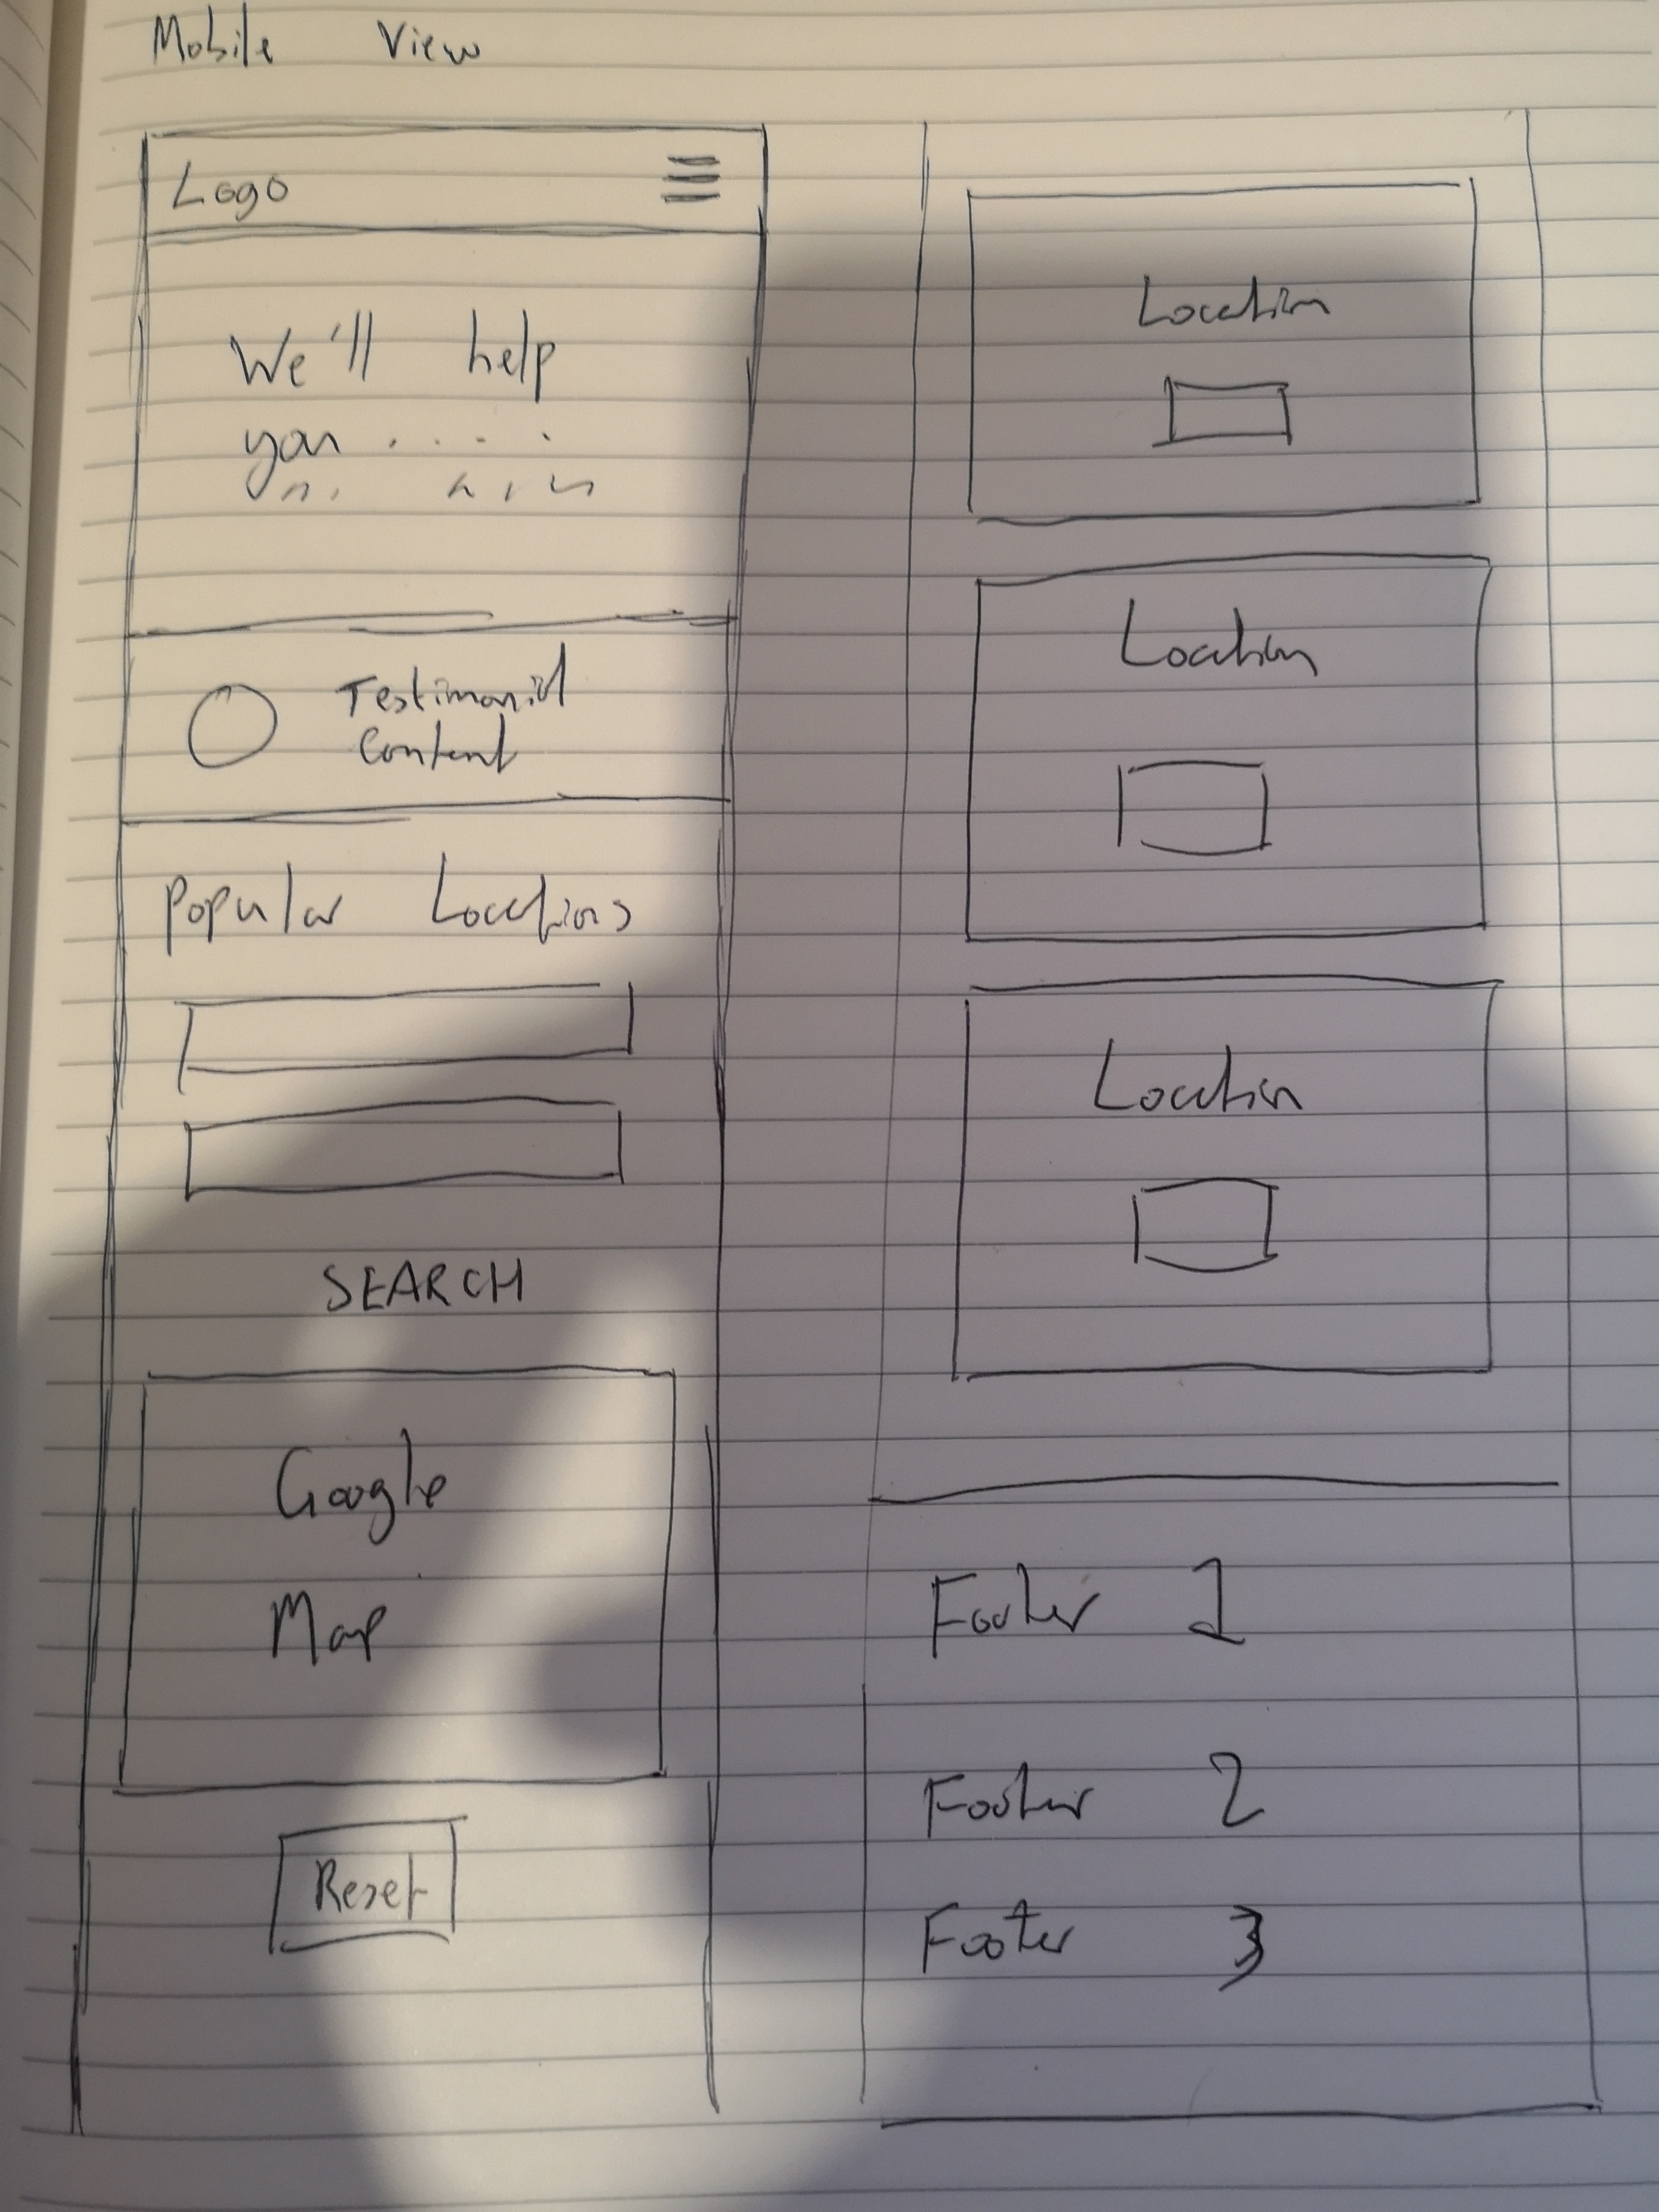 Mobile View
Logo
We'll help
you . . . .
Testimonial
Content
Popular Locations
SEARCH
Google
Map
Reset
Location
Location
Location
Footer 1
Footer 2
Footer 3